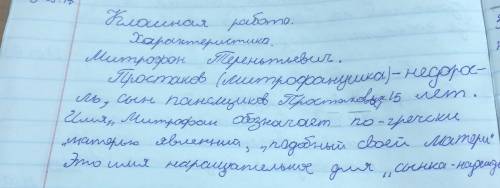 Классная работа.
Характеристика.
Митрофон Терентьевич.
Простаков (Митрофанушка) - недорос-
ль, сын помещиков Простаковых 15 лет.
Имя „Митрофан обозначает по-гречески
„матерью явленный, „подобный своей матери"
Это имя нарицательние для „сынка-